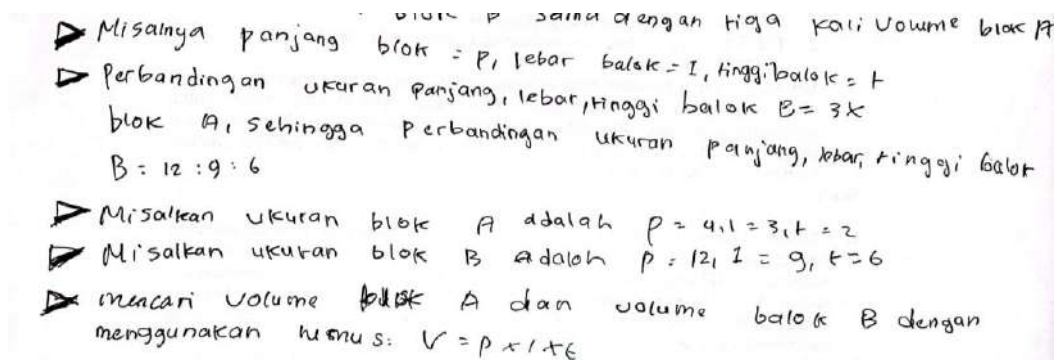 blok B sama dengan tiga kali volume blok A
Misalnya panjang blok = P, lebar balok = l, tinggi balok = t
Perbandingan ukuran panjang, lebar, tinggi balok B = 3x
blok A, sehingga perbandingan ukuran panjang, lebar, tinggi balok
B = 12 : 9 : 6
Misalkan ukuran blok A adalah p = 4, l = 3, t = 2
Misalkan ukuran blok B adalah p = 12, l = 9, t = 6
mencari volume A dan volume balok B dengan
menggunakan rumus: V = p x l x t